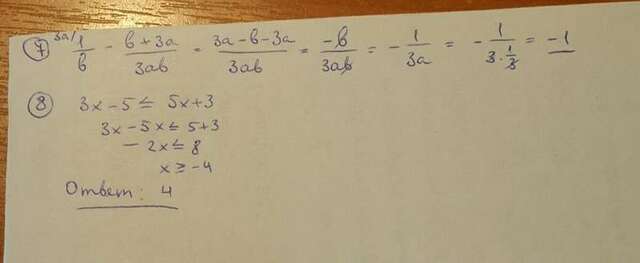 7 3a/ 1/b - (b+3a)/3ab = (3a-b-3a)/3ab = -b/3ab = - 1/3a = - 1/(3·1/3) = -1
8 3x-5 ≤ 5x+3
3x-5x ≤ 5+3
-2x ≤ 8
x ≥ -4
Ответ: 4